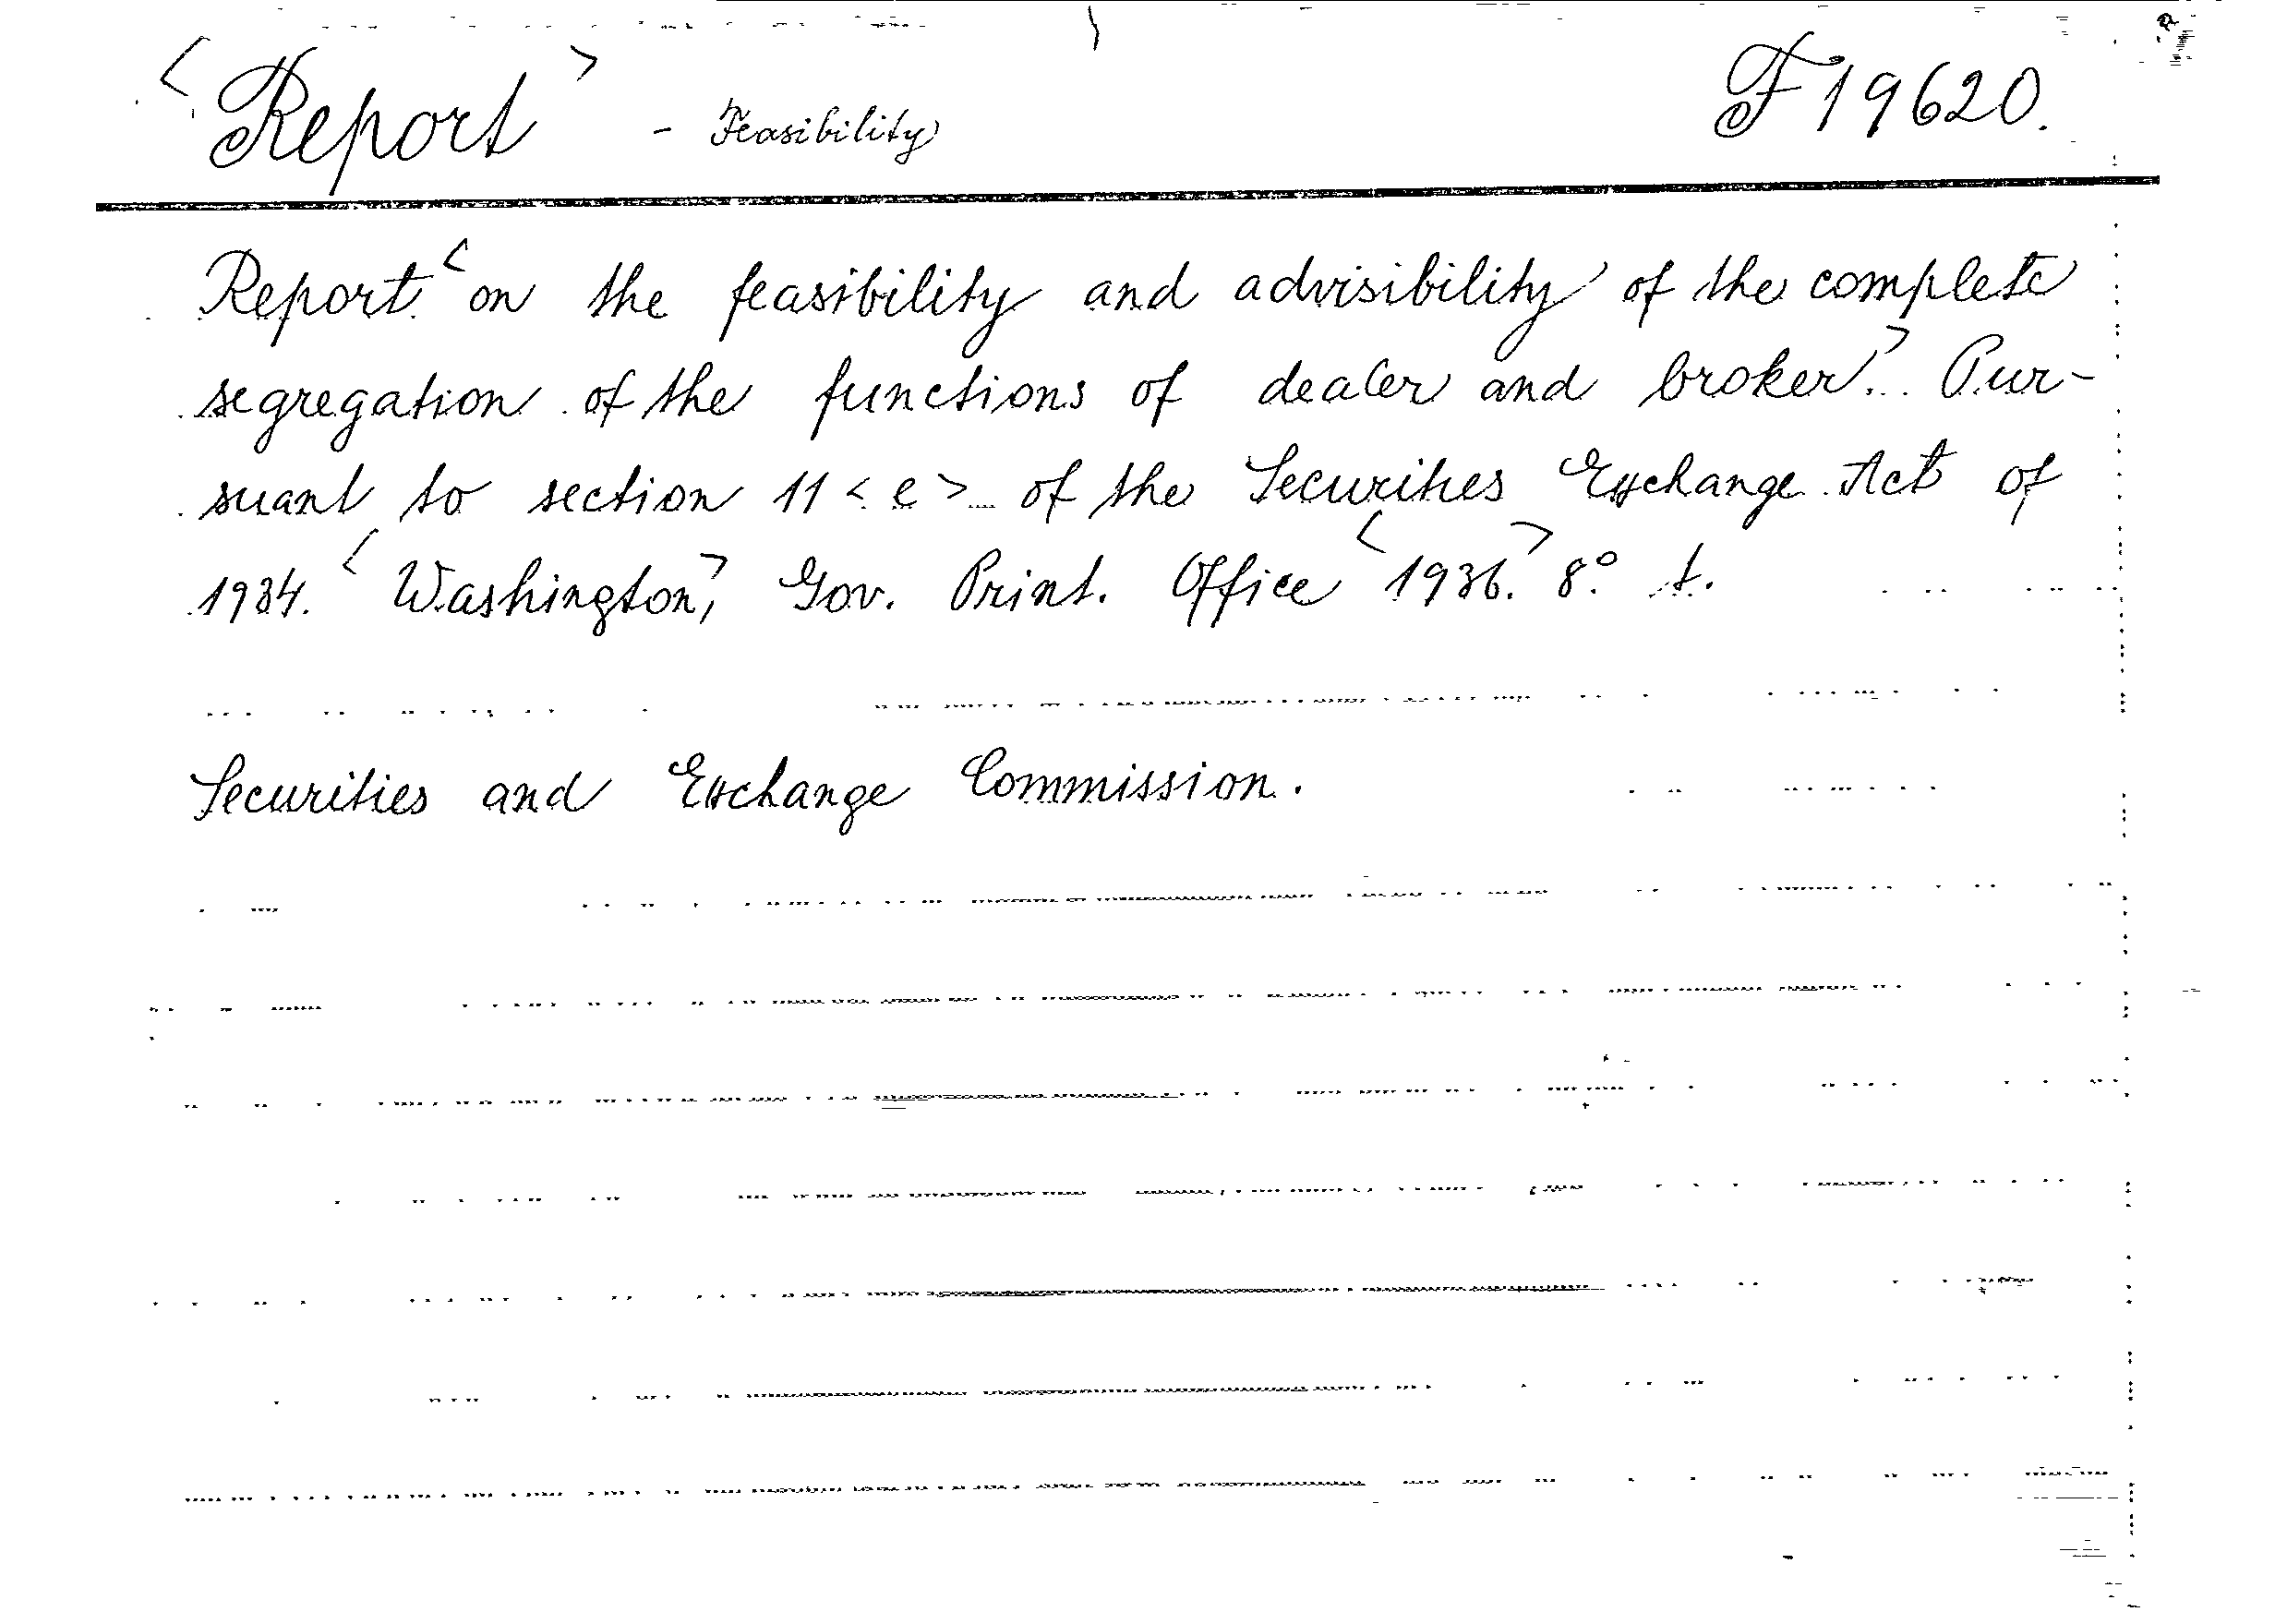 <Report> - Feasibility F 19620.
Report <on the feasibility and advisibility of the complete
segregation of the functions of dealer and broker>. Pur-
suant to section 11 <e> of the Securities Exchange Act of
1934. <Washington>, Gov. Print. Office <1936.> 8° t.
Securities and Exchange Commission.